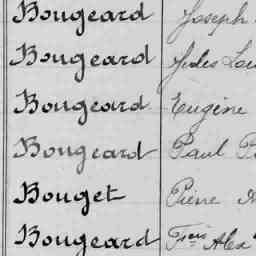 Bougeard Joseph
Bougeard Jules Lou
Bougeard Eugène
Bougeard Paul
Bouget Pierre
Bougeard Frois Alex